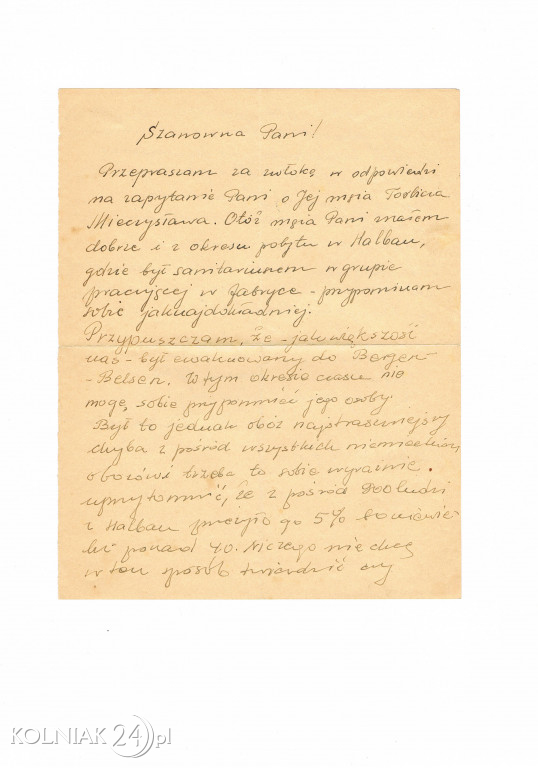 Szanowna Pani!
Przepraszam za zwłokę w odpowiedzi
na zapytanie Pani o Jej męża Torbicza
Mieczysława. Otóż męża Pani znałem
dobrze i z okresu pobytu w Halbau,
gdzie był sanitariuszem w grupie
pracującej w fabryce - przypominam
sobie jaknajdokładniej.
Przypuszczam, że - jak większość
nas - był ewakuowany do Bergen-
-Belsen. W tym okresie czasu nie
mogę sobie przypomnieć jego osoby.
Był to jednak obóz najstraszniejszy
chyba z pośród wszystkich niemieckich
obozów i trzeba to sobie wyraźnie
uprzytomnić, że z pośród ludzi
z Halbau przeżyło go 5%
ponad 40. Niczego nie chcę
w ten sposób twierdzić czy
KOLNIAK 24.pl